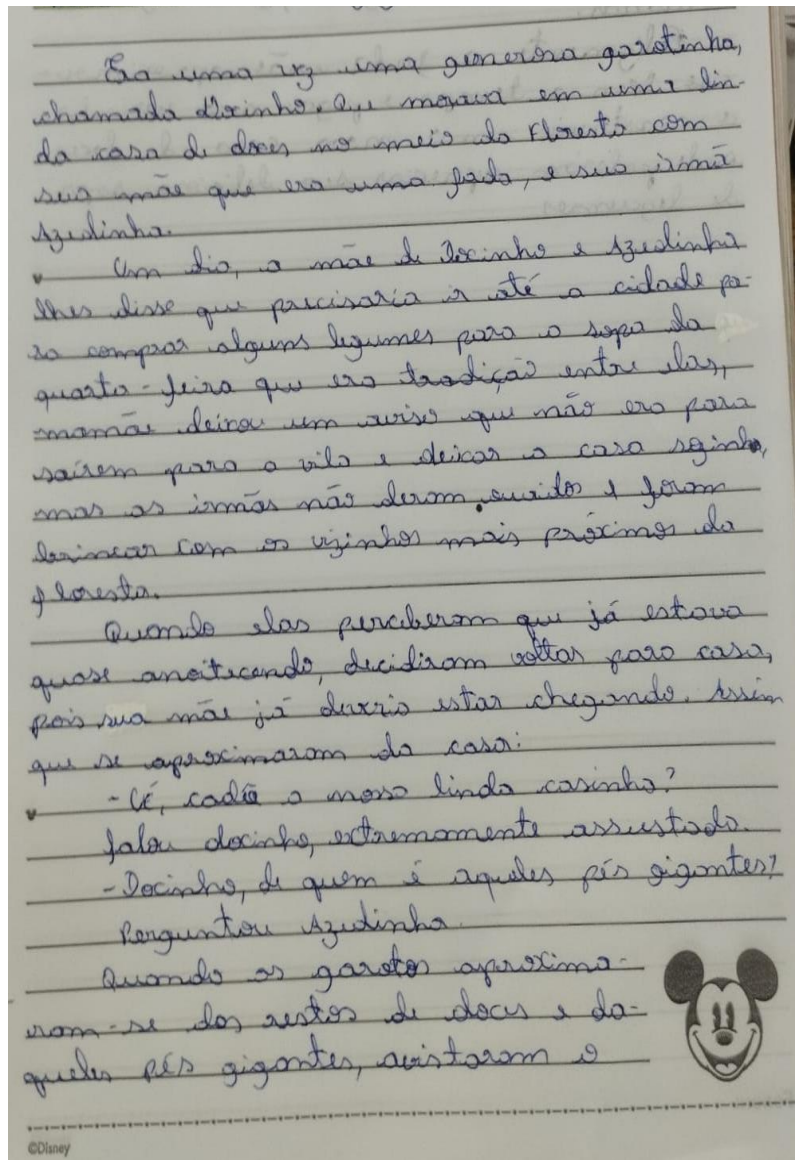 Era uma vez uma generosa garotinha,
chamada Docinho. Que morava em uma lin-
da casa de doces no meio da Floresta com
sua mãe que era uma fada, e sua irmã
Azedinha.
Um dia, a mãe de Docinho e Azedinha
lhes disse que precisaria ir até a cidade pa-
ra comprar alguns legumes para a sopa da
quarta-feira que era tradição entre elas,
mamãe deixou um aviso que não era para
saírem para a vila e deixar a casa sozinha,
mas as irmãs não deram ouvidos e foram
brincar com os vizinhos mais próximos da
floresta.
Quando elas perceberam que já estava
quase anoitecendo, decidiram voltar para casa,
pois sua mãe já deveria estar chegando. Assim
que se aproximaram da casa:
-Ué, cadê a nossa linda casinha?
falou docinho, extremamente assustada.
-Docinho, de quem é aqueles pés gigantes?
Perguntou Azedinha.
Quando as garotas aproxima-
ram-se dos restos de doces e da-
queles pés gigantes, avistaram o
©Disney